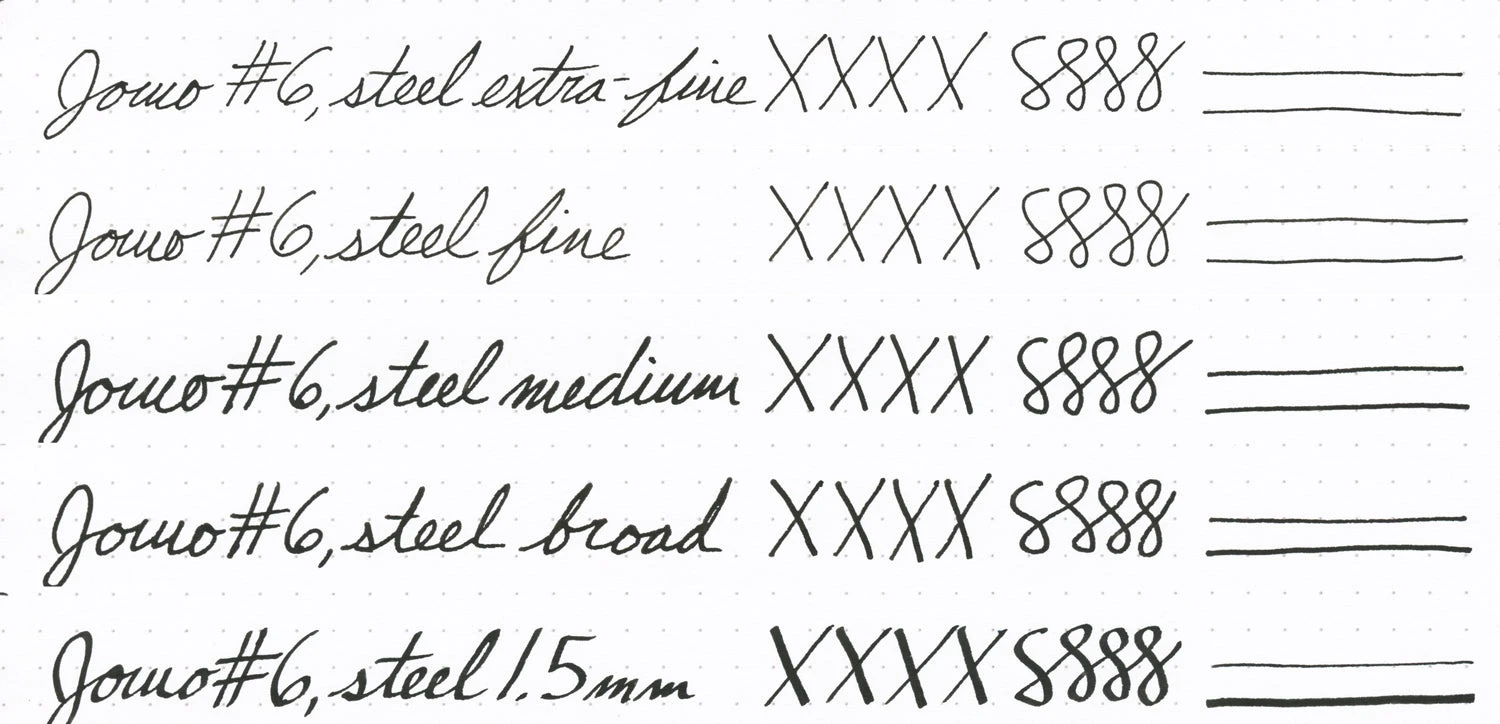 Jowo #6, steel extra-fine XXXX 8888
Jowo #6, steel fine XXXX 8888
Jowo #6, steel medium XXXX 8888
Jowo #6, steel broad XXXX 8888
Jowo #6, steel 1.5mm XXXX 8888